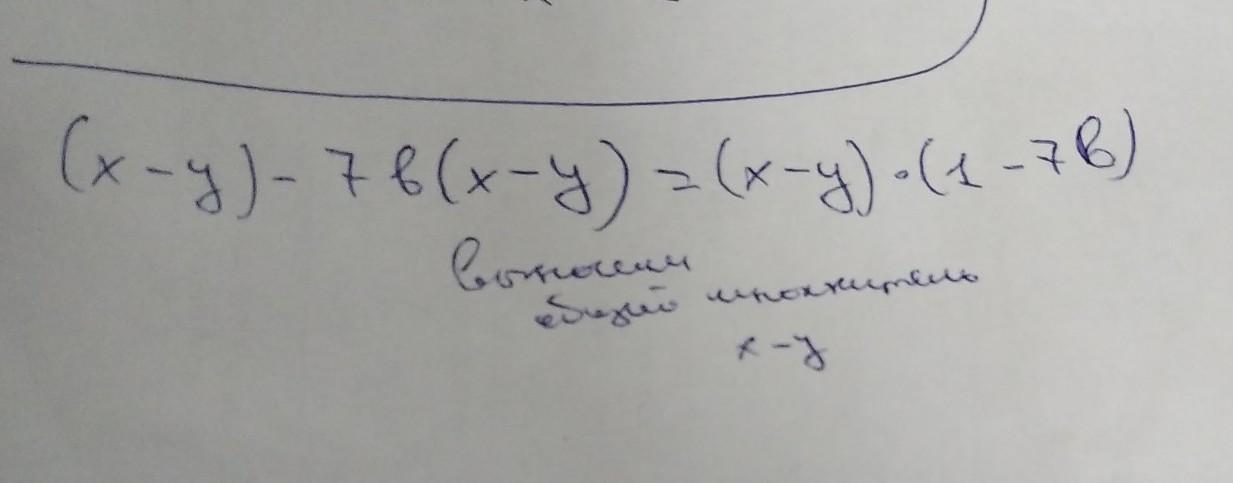 (x-y)-7b(x-y)=(x-y)·(1-7b)
выносим
общий множитель
x-y